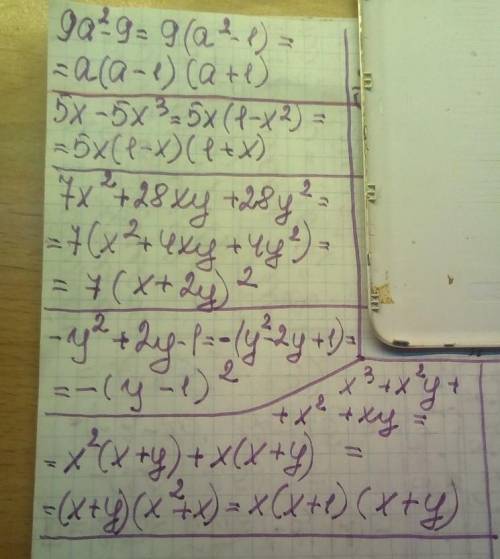 9a²-9= 9(a²-1)=
=a(a-1)(a+1)
5x-5x³=5x(1-x²)=
=5x(1-x)(1+x)
7x²+28xy+28y²=
=7(x²+4xy+4y²)=
= 7(x+2y)²
-y²+2y-1=-(y²-2y+1)=
=-(y-1)²
x³+x²y+
+x²+xy=
=x²(x+y)+x(x+y) =
=(x+y)(x²+x)=x(x+1)(x+y)